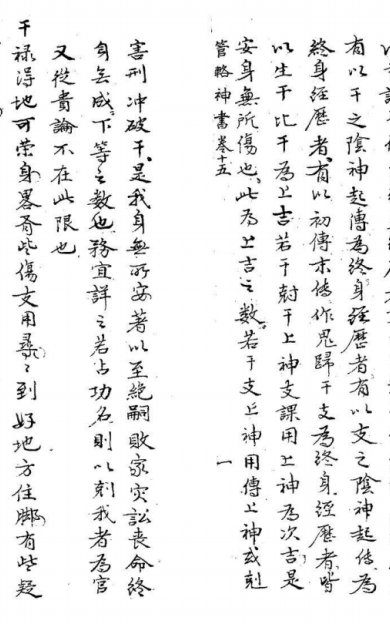 有以干之陰神起傳為終身經歷者有以支之陰神起傳為
終身經歷者有以初傳末傳作鬼歸干支為終身經歷者皆
以生干比干為上吉若干尅干上神支課用上神為次吉是
安身無所傷也此為上吉之數若干支上神用傳上神或刻
管輅神書卷十五 一
害刑冲破干是我身無所安著以至絶嗣敗家灾訟丧命終
身無成下等之数也務宜詳之若占功名則以剋我者為官
又從貴論不在此限也
干祿得地可荣身畧有些傷支用尋〻到好地方住脚有些疑